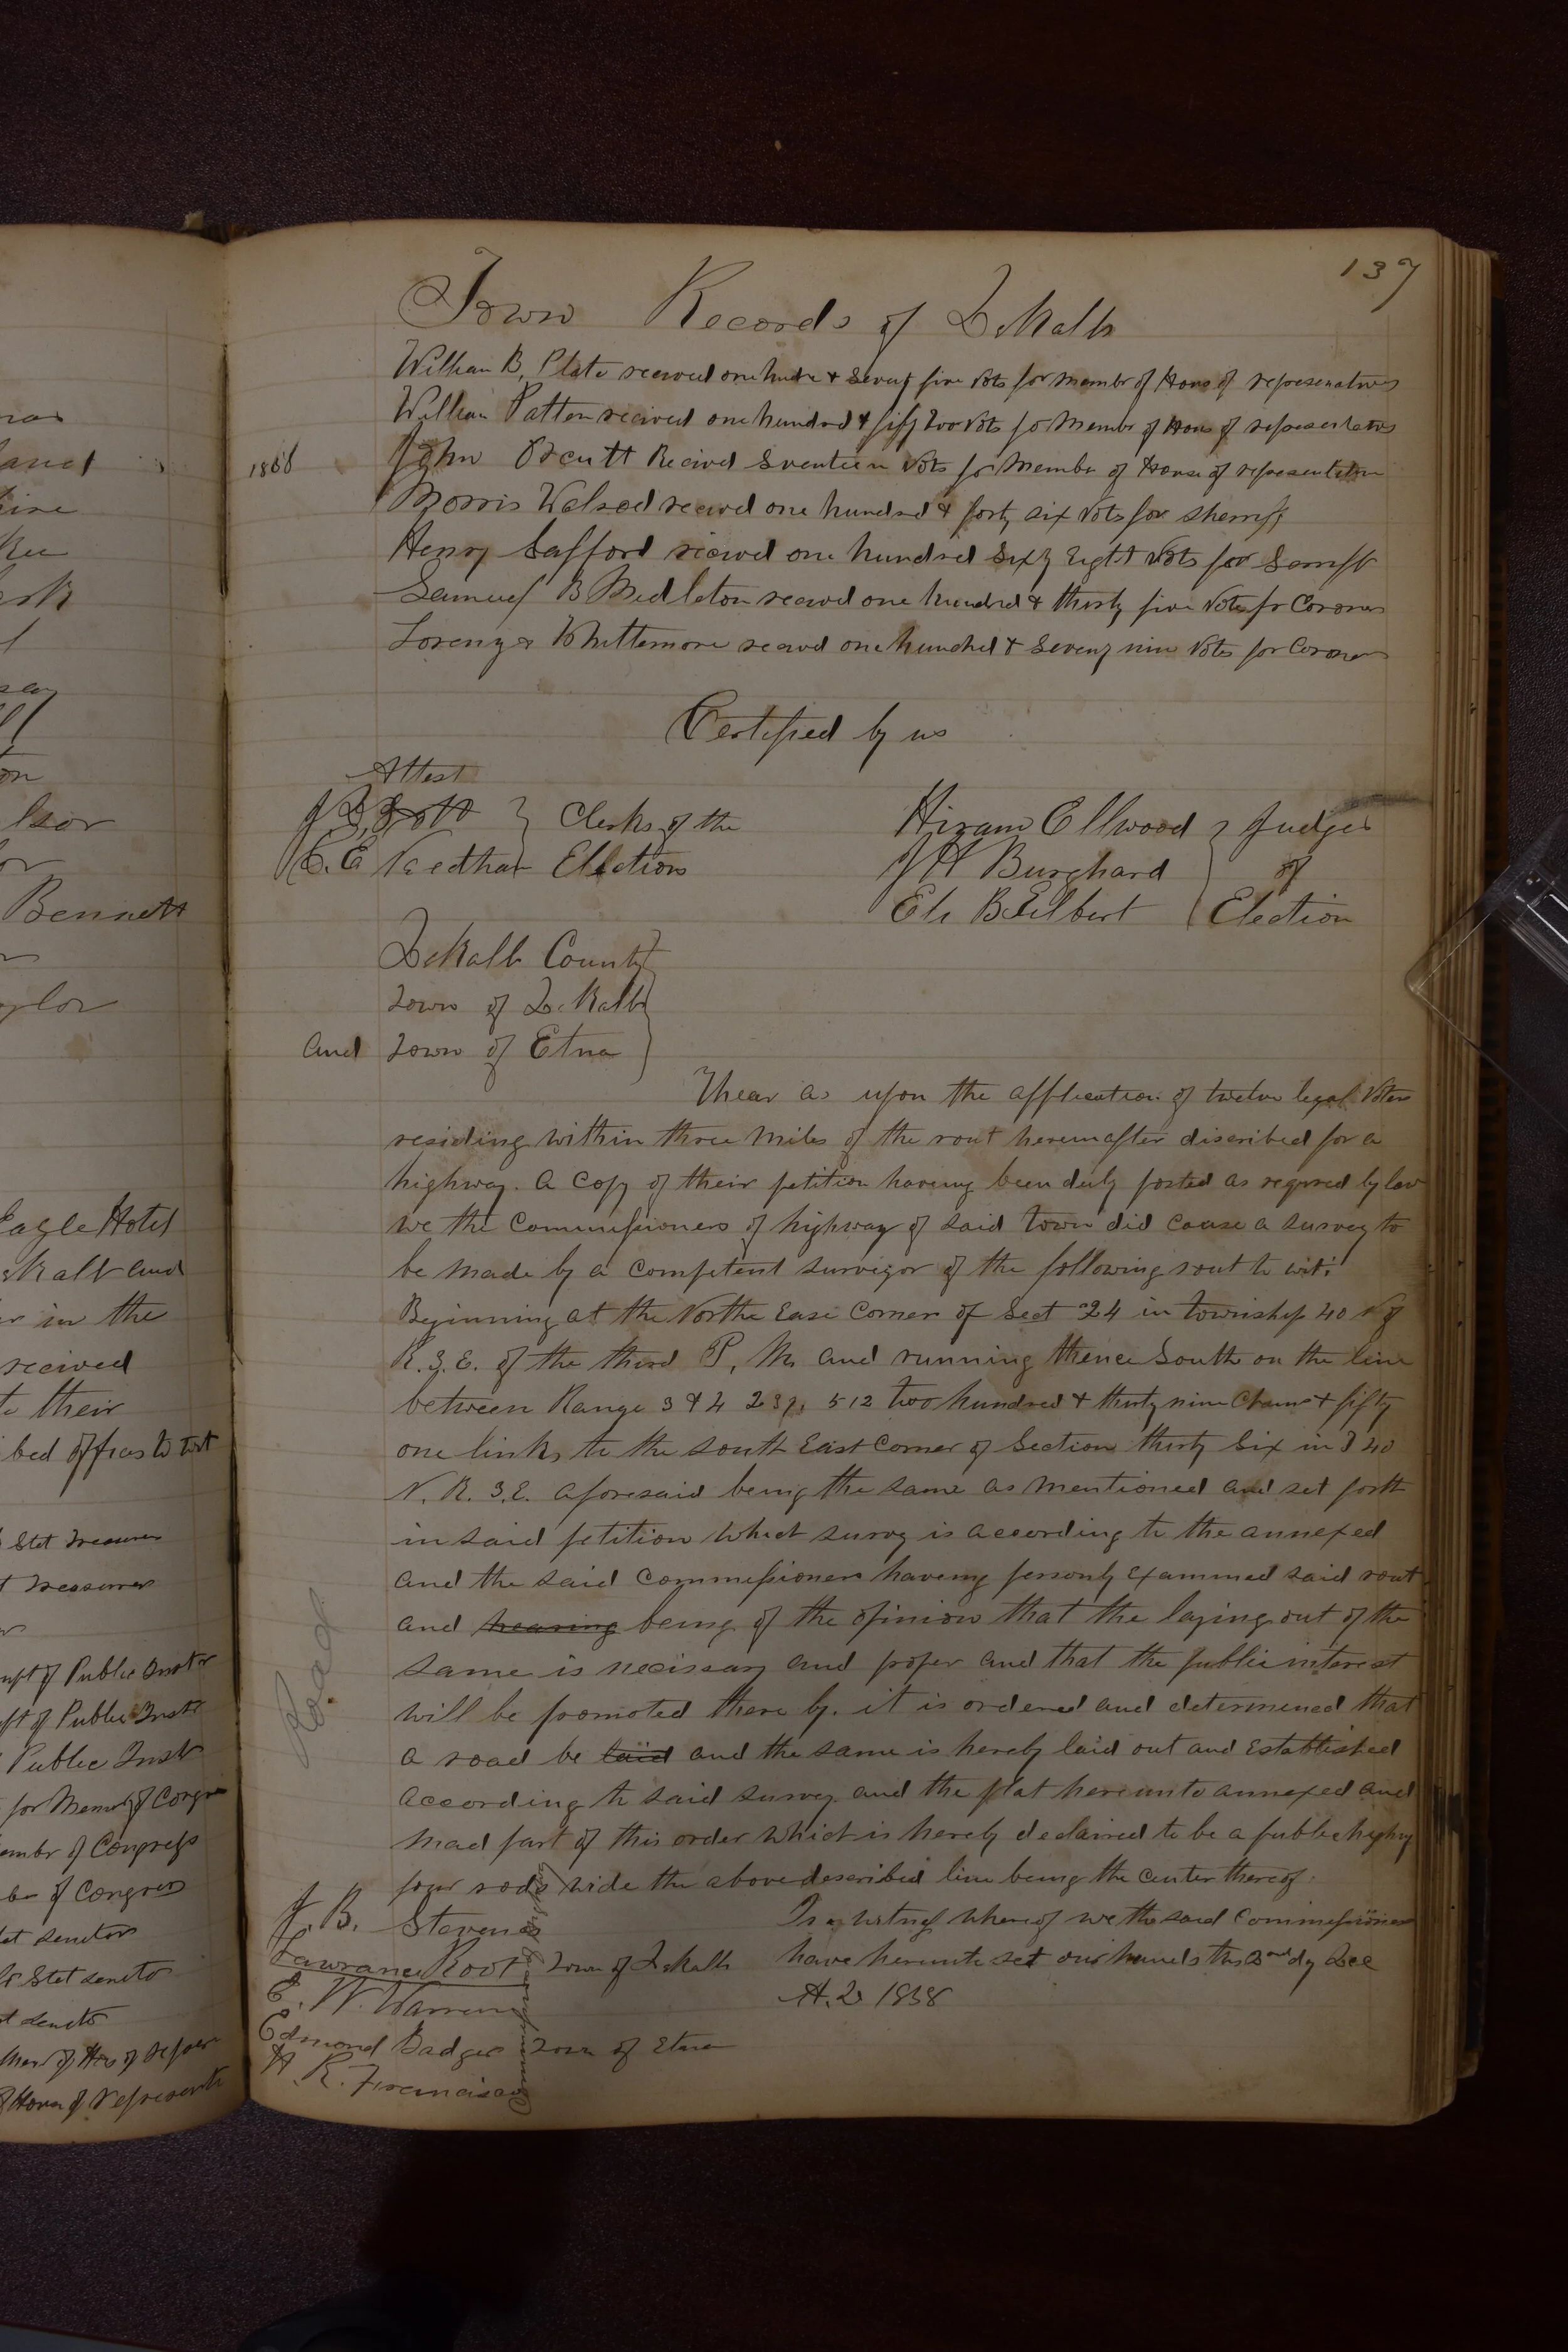 137
Town Records of DeKalb
William B, Plato receved one hudre & Sevey five Vots for member of Hous of represenatives
William Patton recived one hundrd & fify two Vots fo Membr of Hous of representatvs
1858
John Orcutt Recived Sventeen Vots for Member of House of representation
Morris Walrod receivd one hundrd & forty six Vots for sherriff
Henry Safford recived one hundred Sixty Eight Vots for
Samuel B Middleton recevd one hundrd & thirty five Votes fr Coroner
Lorenzo Whittemore recevd one hundred & Seveny nine Vots for Coroner
Certified by us
Attest
Clerks of the
C. E Needham Election
Hiram Ellwood } Judges
J H Burghard of
Eli B Gilbert Election
DeKalb County
Town of DeKalb
and Town of Etna
Whear as upon the application of twelve legal Voters
residing within three miles of the rout hereinafter discribed for a
highway. a Copy of their petition having been duly posted as requred by law
we the Commissioners of highway of said town did cause a survey to
be made by a Competent survigor of the following rout to wit:
Beginning at the Northe East Corner of Sect 24 in township 40 N of
R. 3. E. of the third P, M. and running thence South on the line
between Range 3 & 4 239, 51 2 two hundred & thirty nine Chains & fifty
one links to the south East Corner of Section thirty Six in T 40
N. R. 3. E. aforesaid being the same as mentioned and set forth
in said petition which survey is according to the annexed
and the said Commissioners having personly Examined said rout
and hearing being of the opinion that the laying out of the
same is necissary and proper and that the public interest
will be promoted there by. it is ordered and determened that
Road
a road be laid and the same is hereby laid out and Established
according to said survey and the plat hereunto annexed and
mad part of this order which is hereby declaired to be a public highwy
four rods wide the above described line being the center thereof.
J. B. Stevens
Lawrance Root Town of DeKalb
E. W. Warren
Edmond Badger Town of Etna
H. R. Francisco
In witness whereof we the said Commissioners
have hereunto set our hands this 2nd dy Dec
A. D 1858
nas
Bennett
Eagle Hotel
and
in the
recived
to their
Stet Treasurer
Treasurer
of Public Instr
of Public Instr
Public Instr
for Memr of Congre
Membr of Congress
of Congress
senator
Stet senato
senato
of Hous of represents